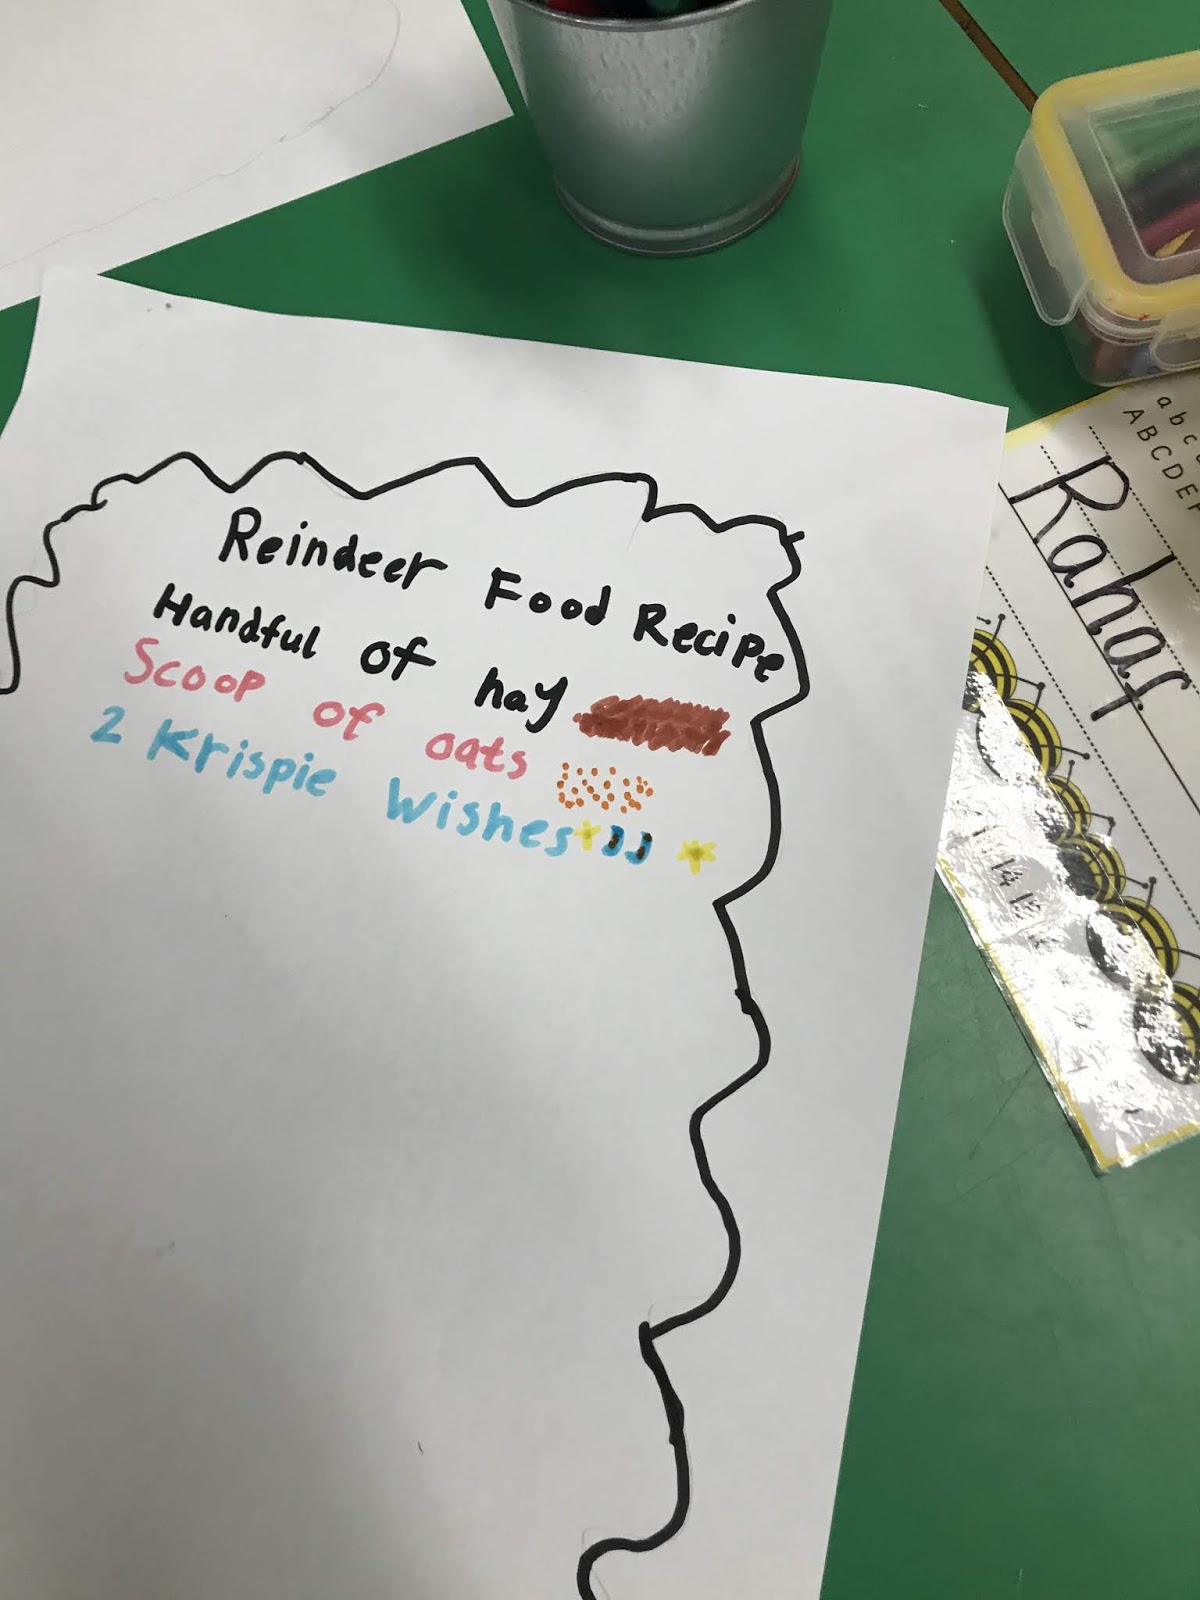 Reindeer Food Recipe
Handful of hay
Scoop of oats
2 Krispie Wishes
a b c
A B C D E F
Rahaf
14